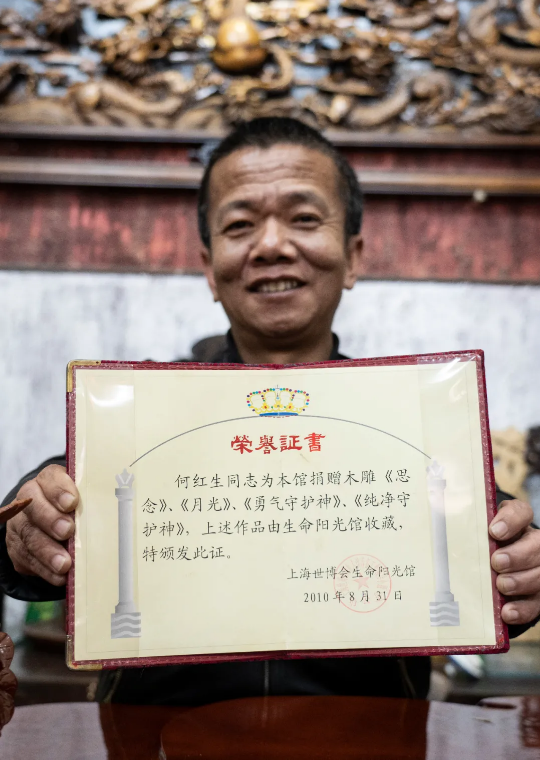 榮譽証書
何红生同志为本馆捐赠木雕《思
念》、《月光》、《勇气守护神》、《纯净守
护神》,上述作品由生命阳光馆收藏,
特颁发此证。
上海世博会生命阳光馆
2010年8月31日